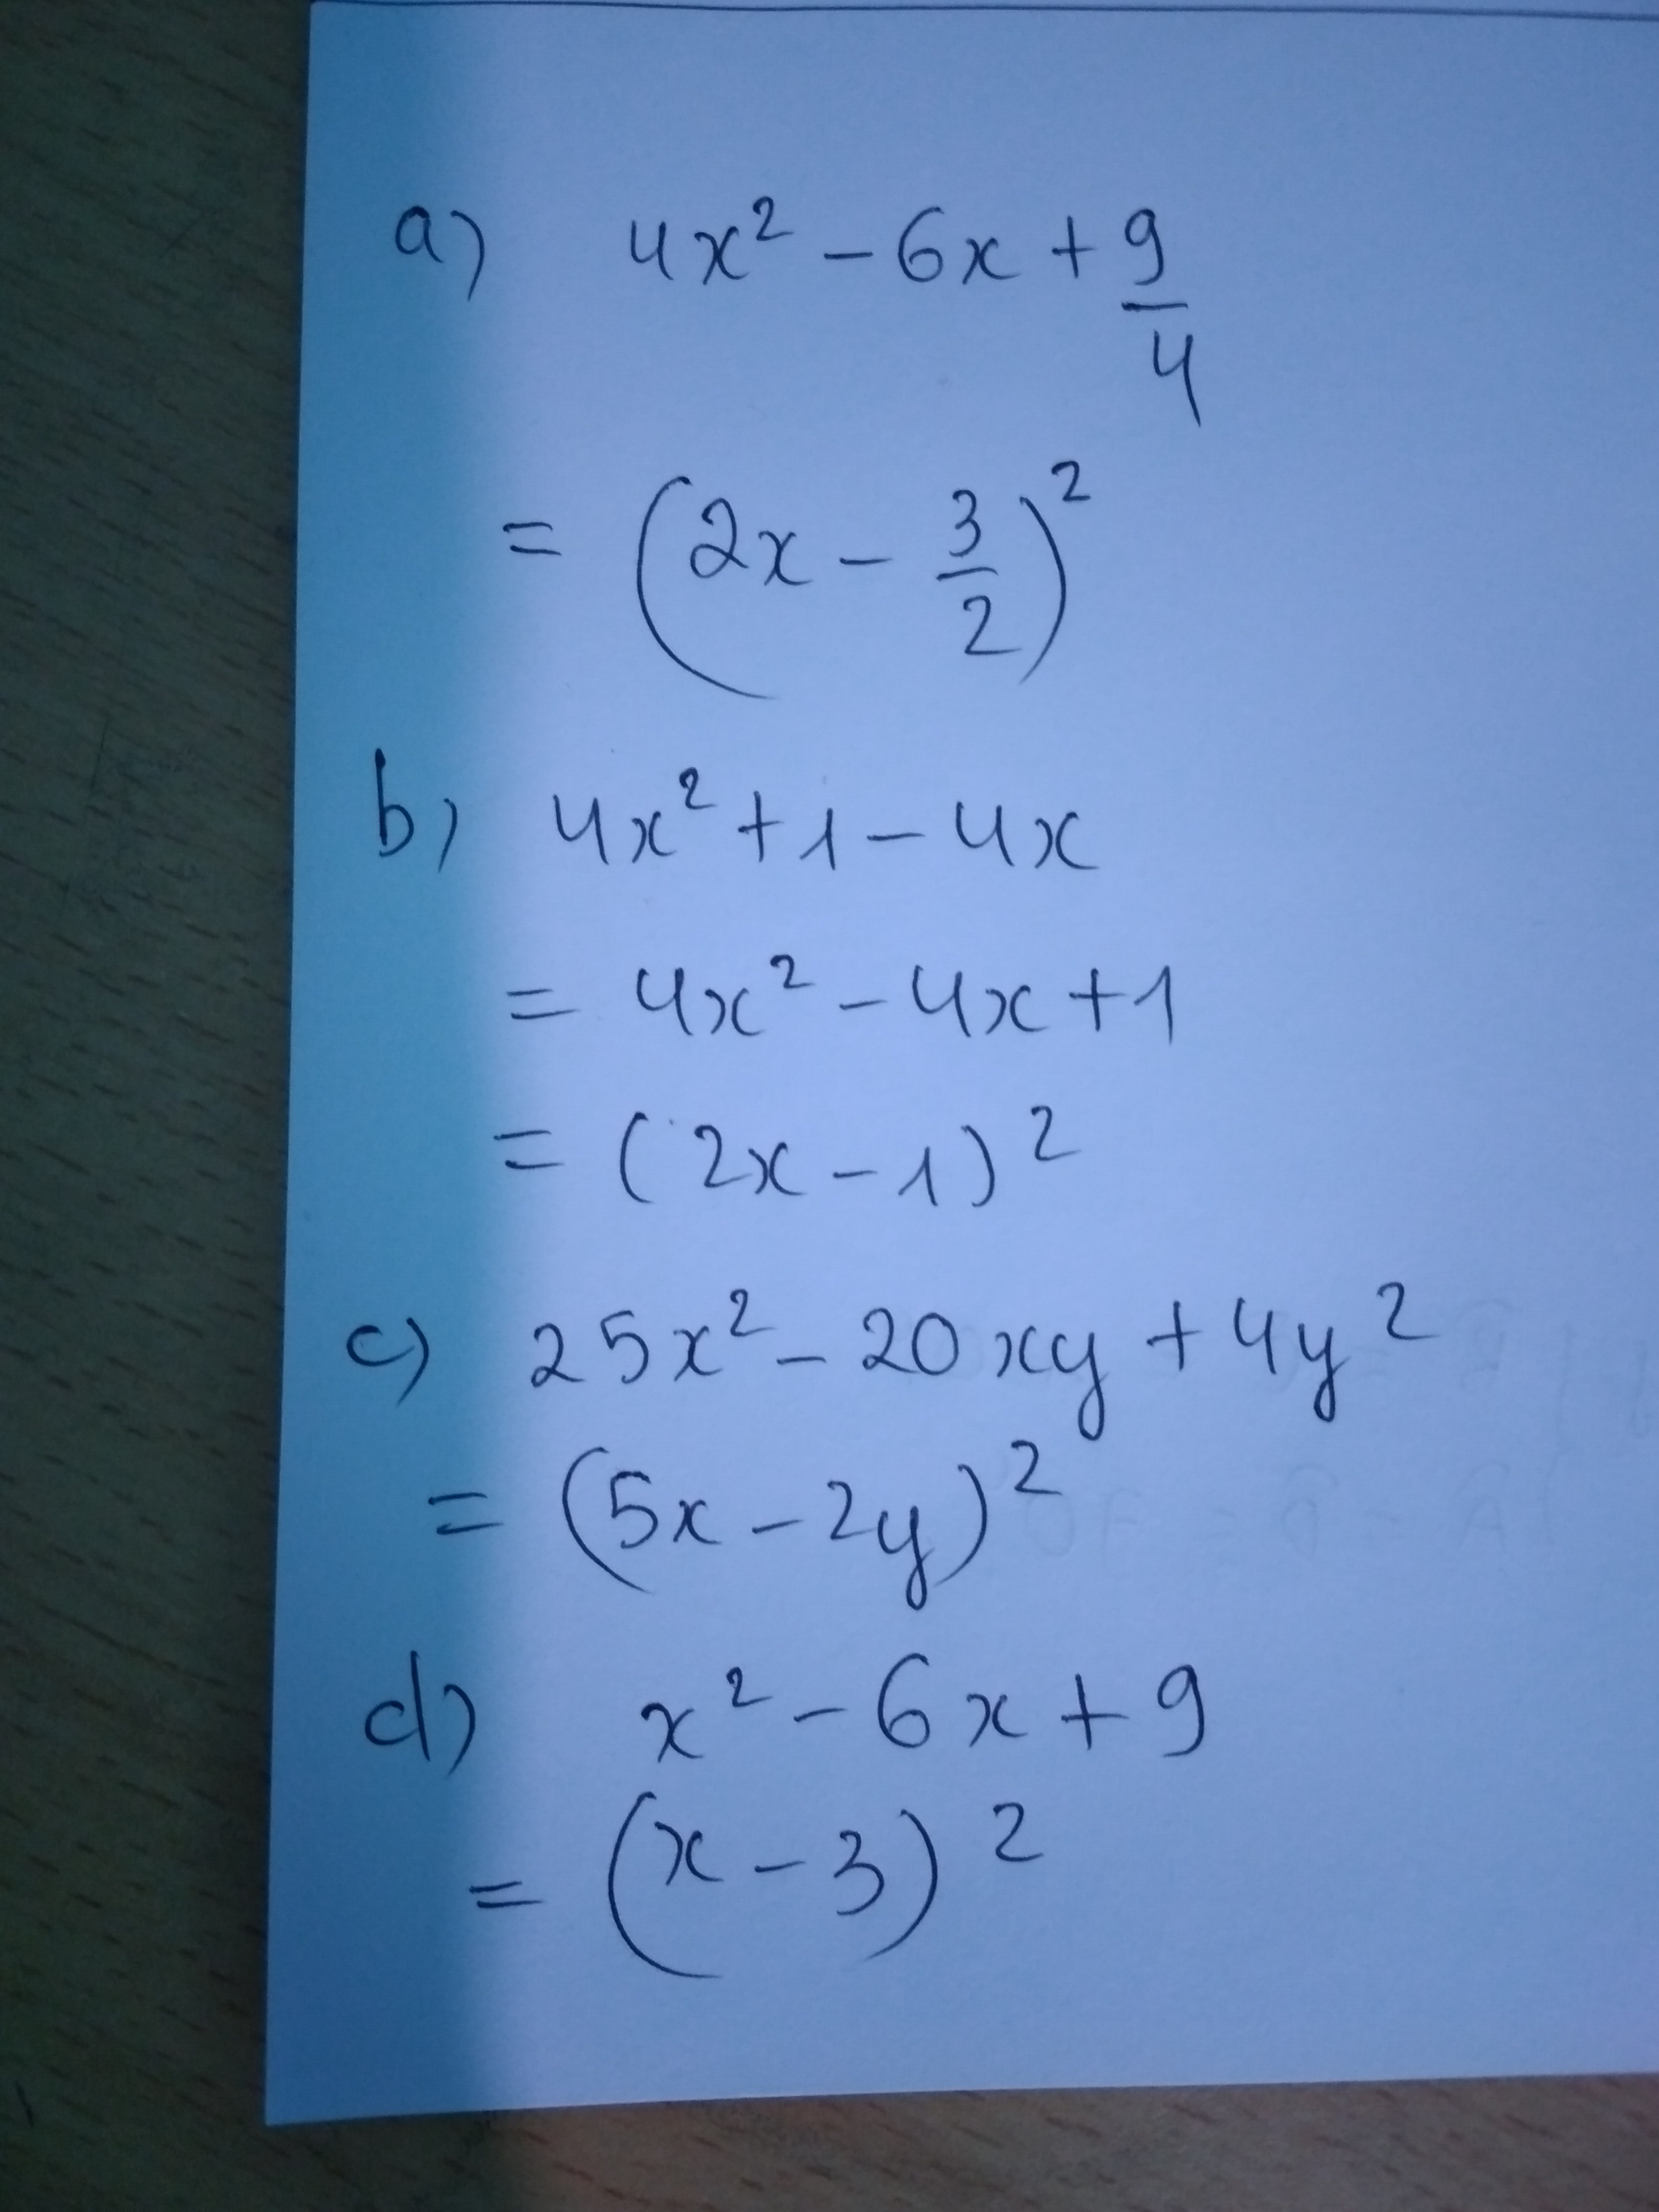 a) 4x² - 6x + 9/4
= (2x - 3/2)²
b) 4x² + 1 - 4x
= 4x² - 4x + 1
= (2x - 1)²
c) 25x² - 20xy + 4y²
= (5x - 2y)²
d) x² - 6x + 9
= (x - 3)²